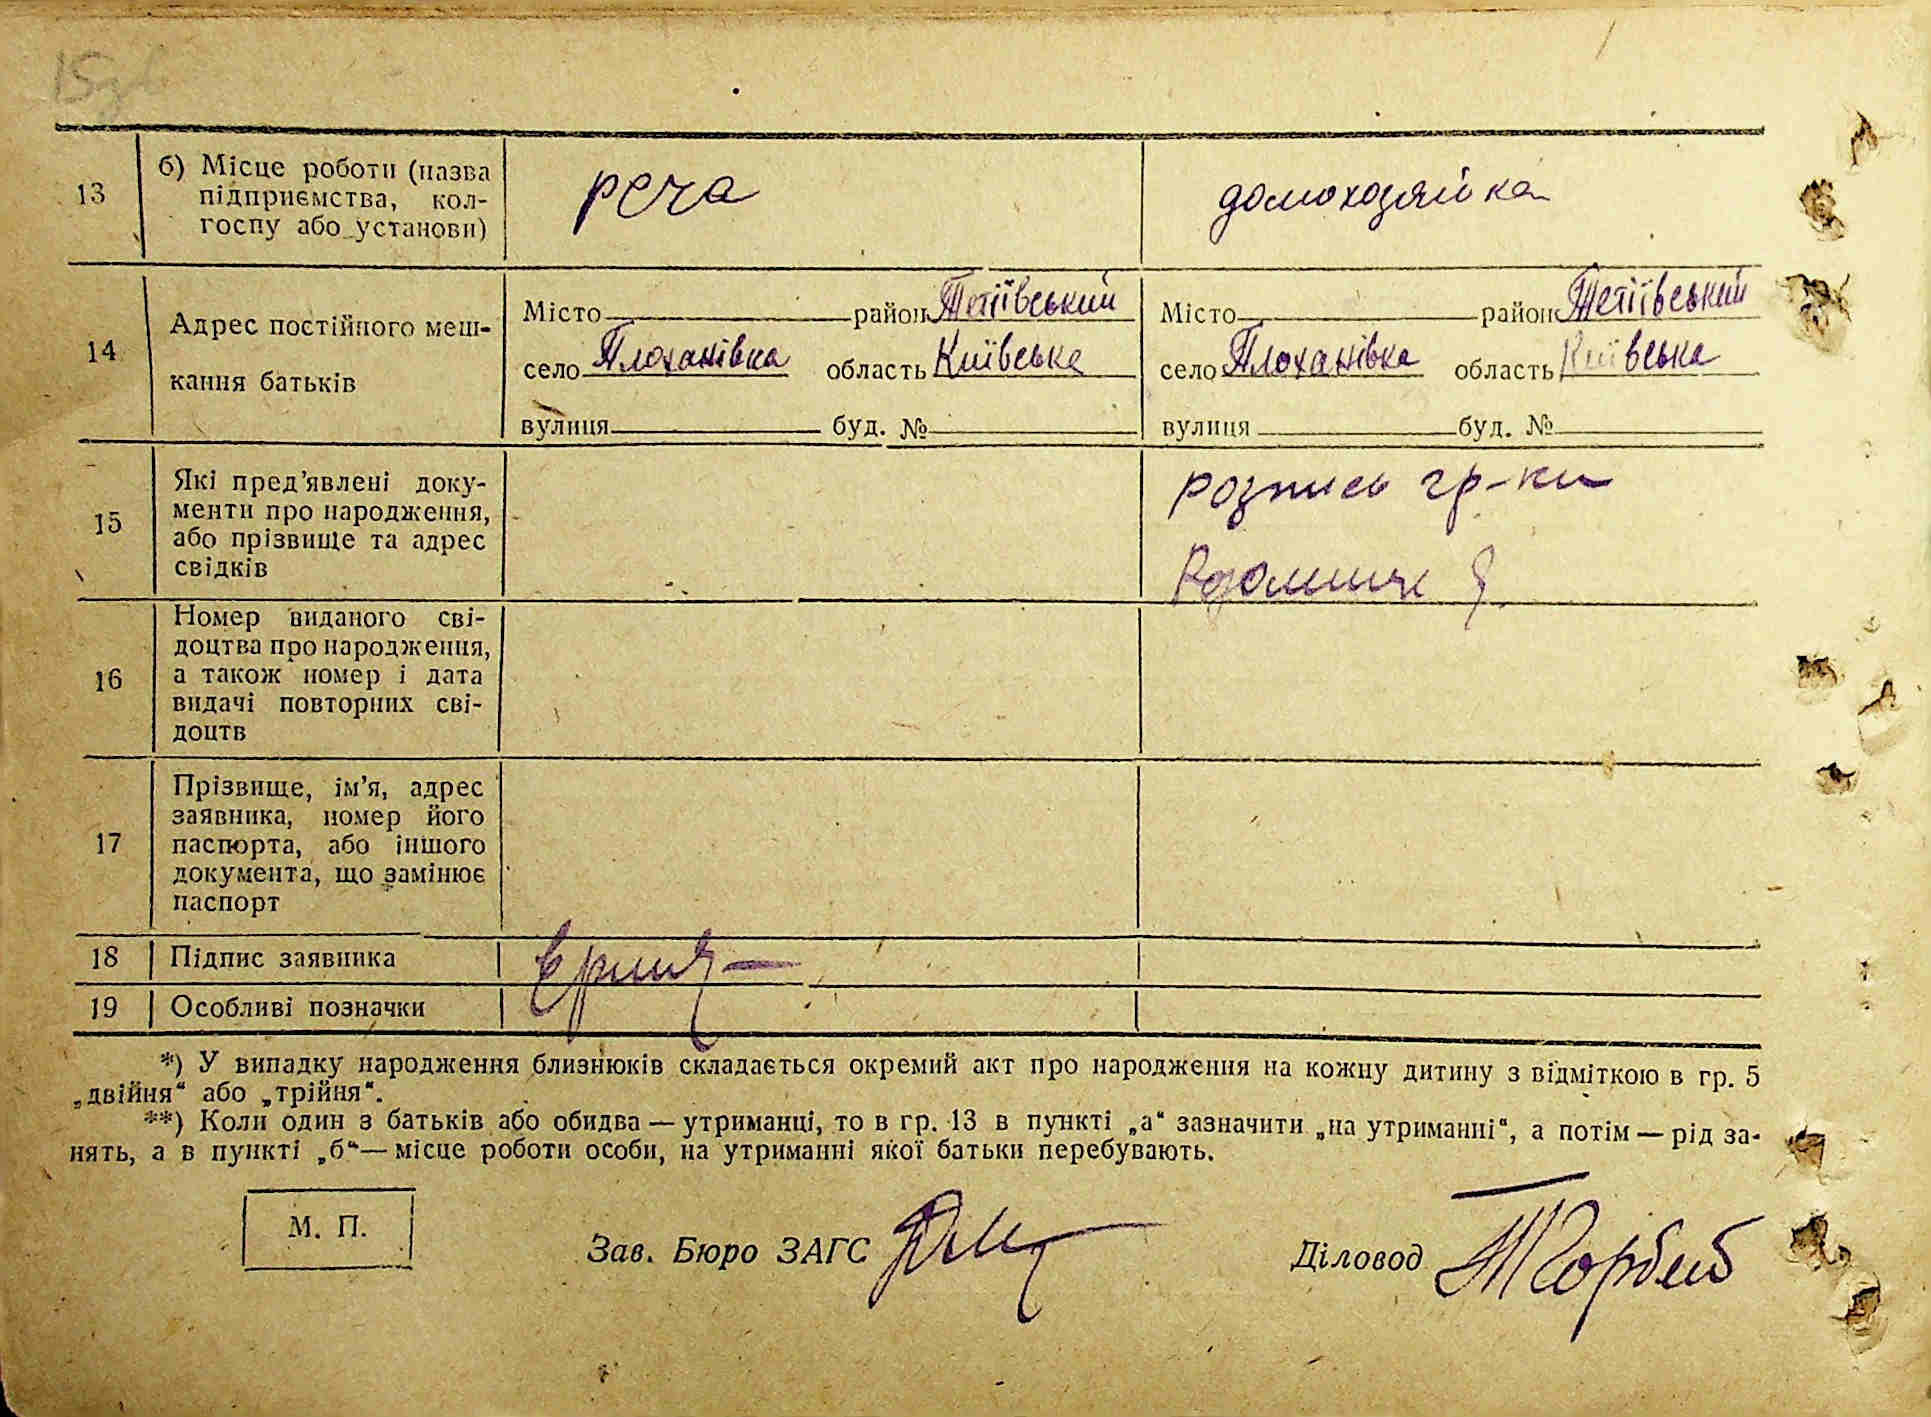 15зв
13
б) Місце роботи (назва
підприємства, кол-
госпу або установи)
реча
домохозяйка
14
Адрес постійного меш-
кання батьків
Місто район Тетіївський
село Плоханівка область Київська
вулиця буд. №
Місто район Тетіївський
село Плоханівка область Київська
вулиця буд. №
15
Які пред'явлені доку-
менти про народження,
або прізвище та адрес
свідків
розпись гр-ки
16
Номер виданого сві-
доцтва про народження,
а також номер і дата
видачі повторних сві-
доцтв
17
Прізвище, ім'я, адрес
заявника, номер його
паспорта, або іншого
документа, що замінює
паспорт
18
Підпис заявника
19
Особливі позначки
*) У випадку народження близнюків складається окремий акт про народження на кожну дитину з відміткою в гр. 5
„двійня“ або „трійня“.
**) Коли один з батьків або обидва — утриманці, то в гр. 13 в пункті „а“ зазначити „на утриманні“, а потім — рід за-
нять, а в пункті „б“ — місце роботи особи, на утриманні якої батьки перебувають.
М. П.
Зав. Бюро ЗАГС
Діловод